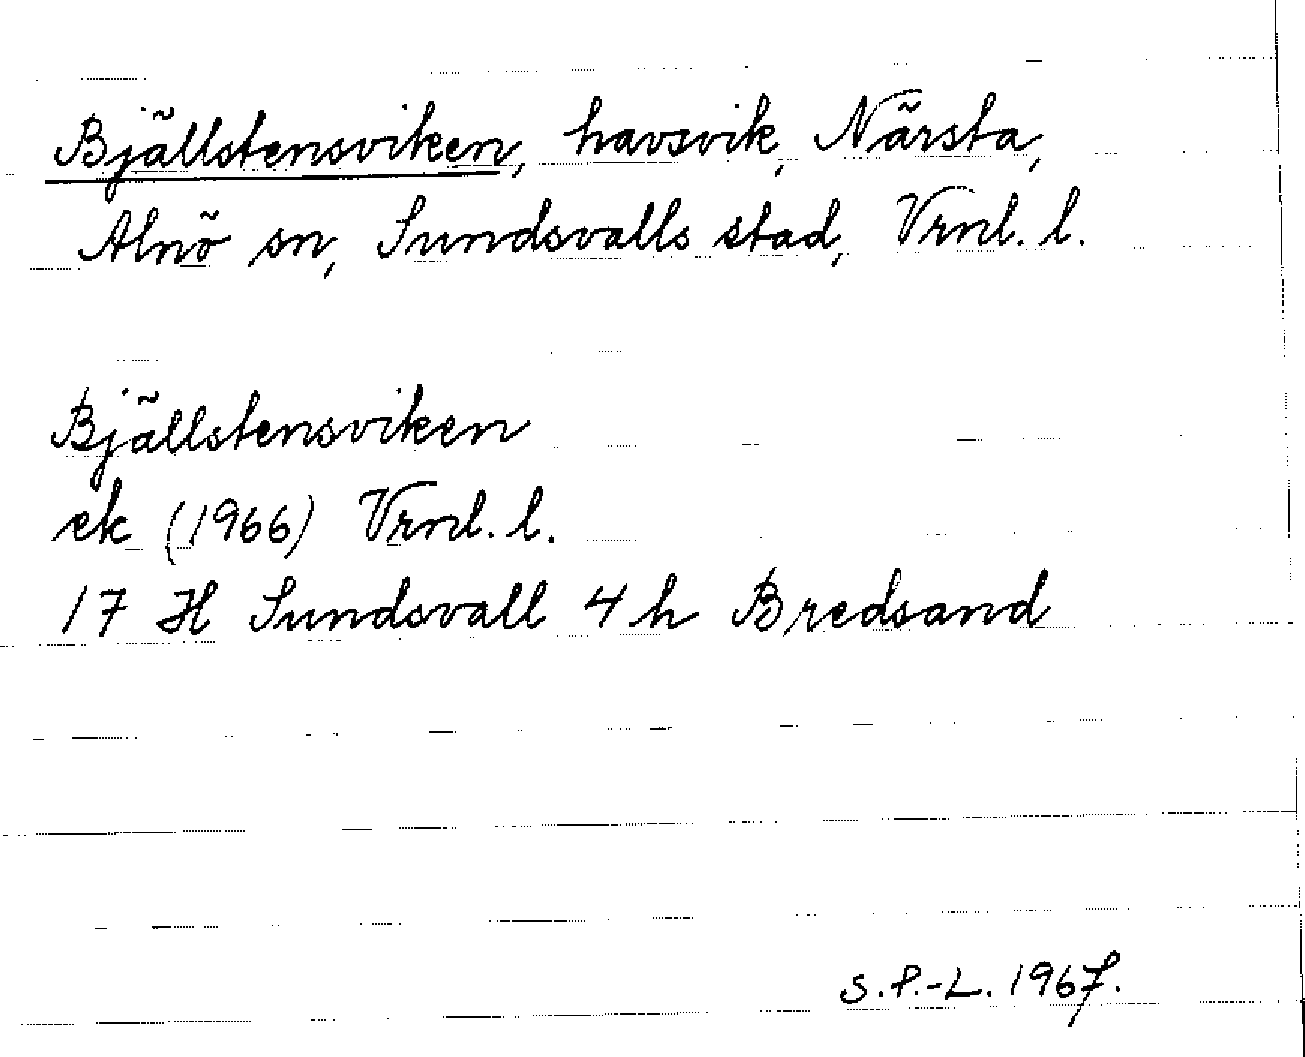 Bjällstensviken, havsvik, Närsta,
Alnö sn, Sundsvalls stad, Vrnl. l.
Bjällstensviken
ek (1966) Vrnl. l.
17 H Sundsvall 4 h Bredsand
S.P.-L. 1967.